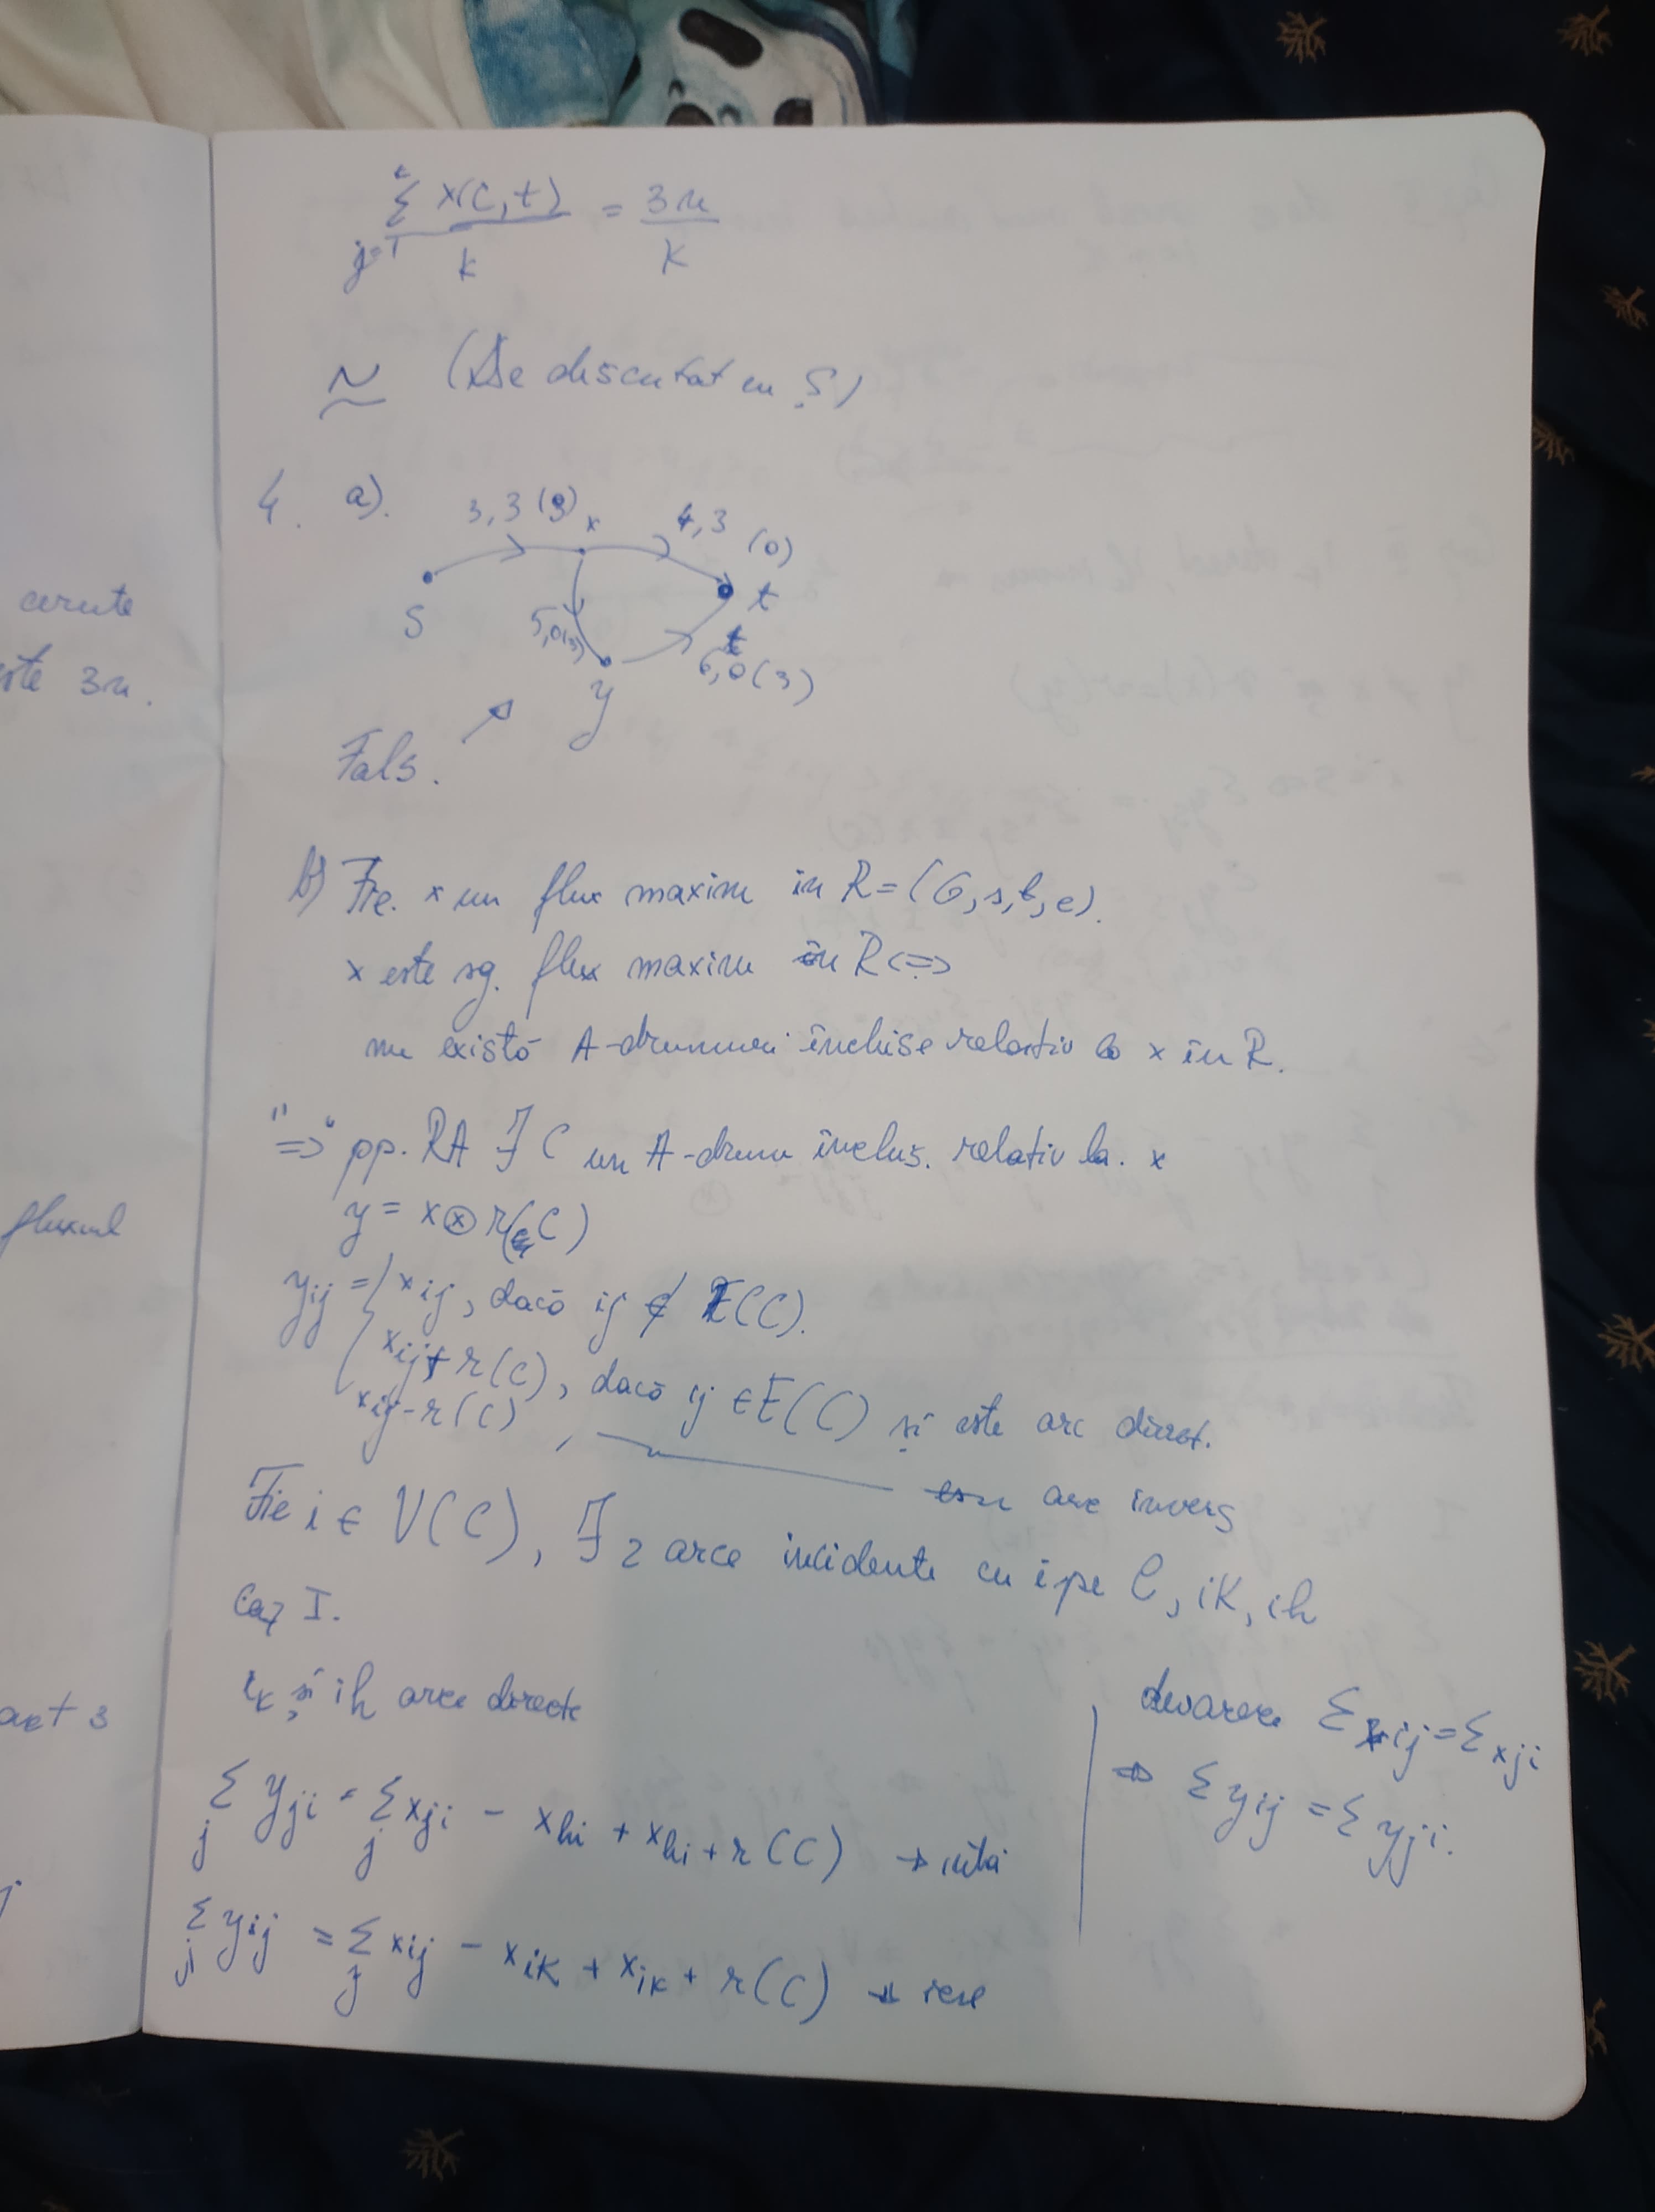 cerute
este 3n.
fluxul
3
Σ x(C,t) / k = 3n / k
j=1
(De discutat cu Ș)
4. a).
3,3 (3) x 4,3 (0)
s
t
5,0(3)
6,0(3)
y
Fals.
b) Fie x un flux maxim in R=(G,s,t,c).
x este sg. flux maxim în R <=>
nu există A-drumuri închise relativ la x în R.
"=>" pp. RA ∃ C un A-drum închis. relativ la x
y = x ⊗ r(C)
yij = { xij, dacă ij ∉ E(C).
xij + r(C), dacă ij ∈ E(C) și este arc direct.
xij - r(C), arc invers
Fie i ∈ V(C), ∃ 2 arce incidente cu i pe C, ik, ih
Caz I.
ik și ih arce directe
Σj yji = Σj xji - xhi + xhi + r(C) → intră
Σj yij = Σj xij - xik + xik + r(C) → iese
deoarece Σ xij = Σ xji
=> Σ yij = Σ yji.